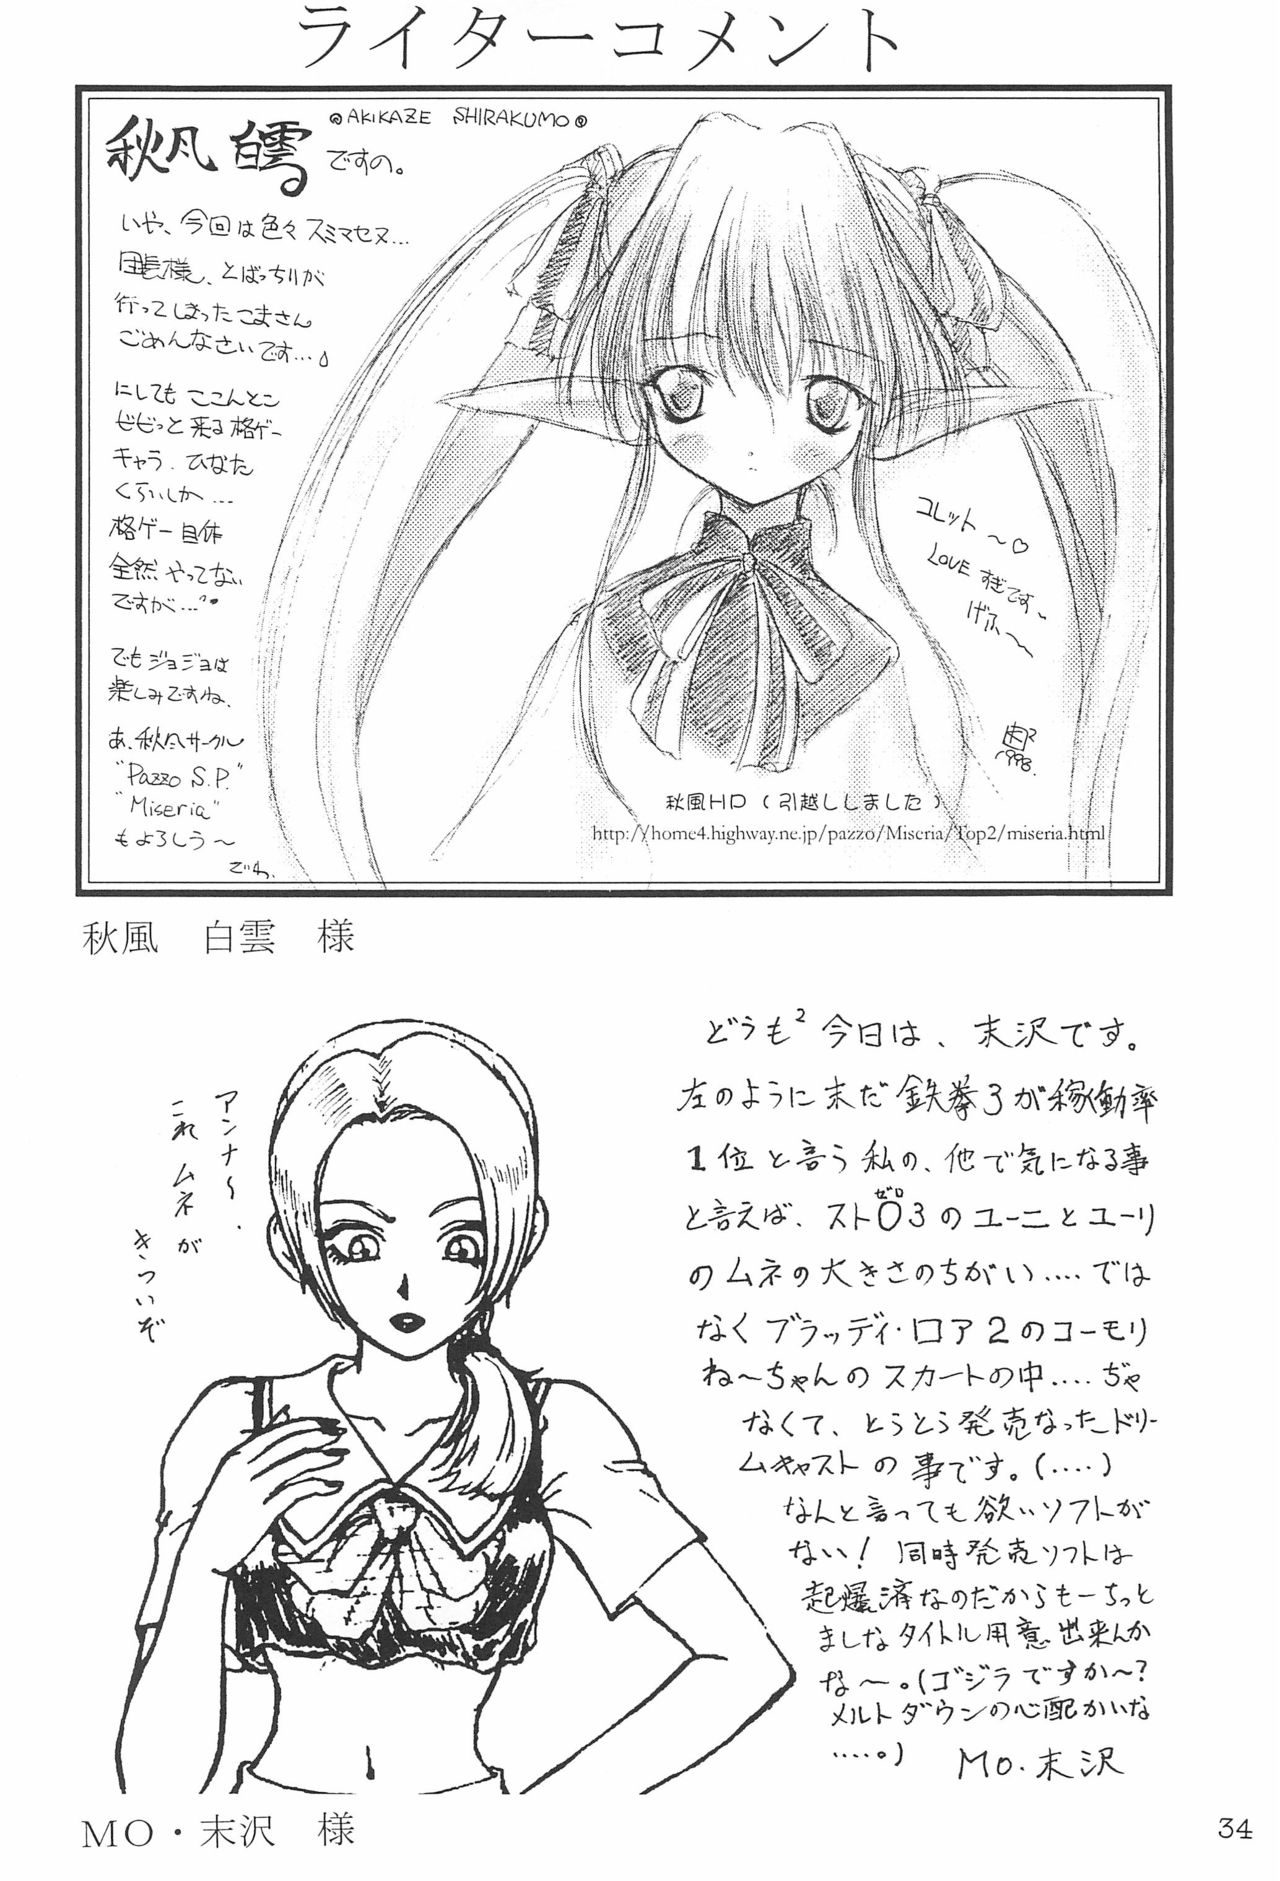 ライターコメント
秋風 白雲
AKIKAZE SHIRAKUMO
ですの。
いや、今回は色々スミマセヌ…
団長様、とばっちりが
行ってしまったこまさん
ごめんなさいです…
にしても ここんとこ
ビビっと来る格ゲー
キャラ、ひなた
くらいしか…
格ゲー自体
全然やってない
ですが…
でもジョジョは
楽しみですね、
あ、秋風サークル
"Pazzo S.P."
"Miseria"
もよろしう〜
でわ、
コレット〜♡
LOVEすぎです、
げふ〜
1998.
秋風HP(引越ししました)
http://home4.highway.ne.jp/pazzo/Miseria/Top2/miseria.html
秋風 白雲 様
アンナ〜、
これムネが
きついぞ
どうも² 今日は、末沢です。
左のように未だ鉄拳3が稼働率
1位と言う私の、他で気になる事
と言えば、ストZERO3のユーニとユーリ
のムネの大きさのちがい....では
なくブラッディ・ロア2のコーモリ
ね〜ちゃんのスカートの中....ぢゃ
なくて、とうとう発売なったドリー
ムキャストの事です。(....)
なんと言っても欲いソフトが
ない! 同時発売ソフトは
起爆済なのだからもーちっと
ましなタイトル用意出来んか
な〜。(ゴジラですか〜?
メルトダウンの心配かいな
.....。)
MO.末沢
MO・末沢 様
34